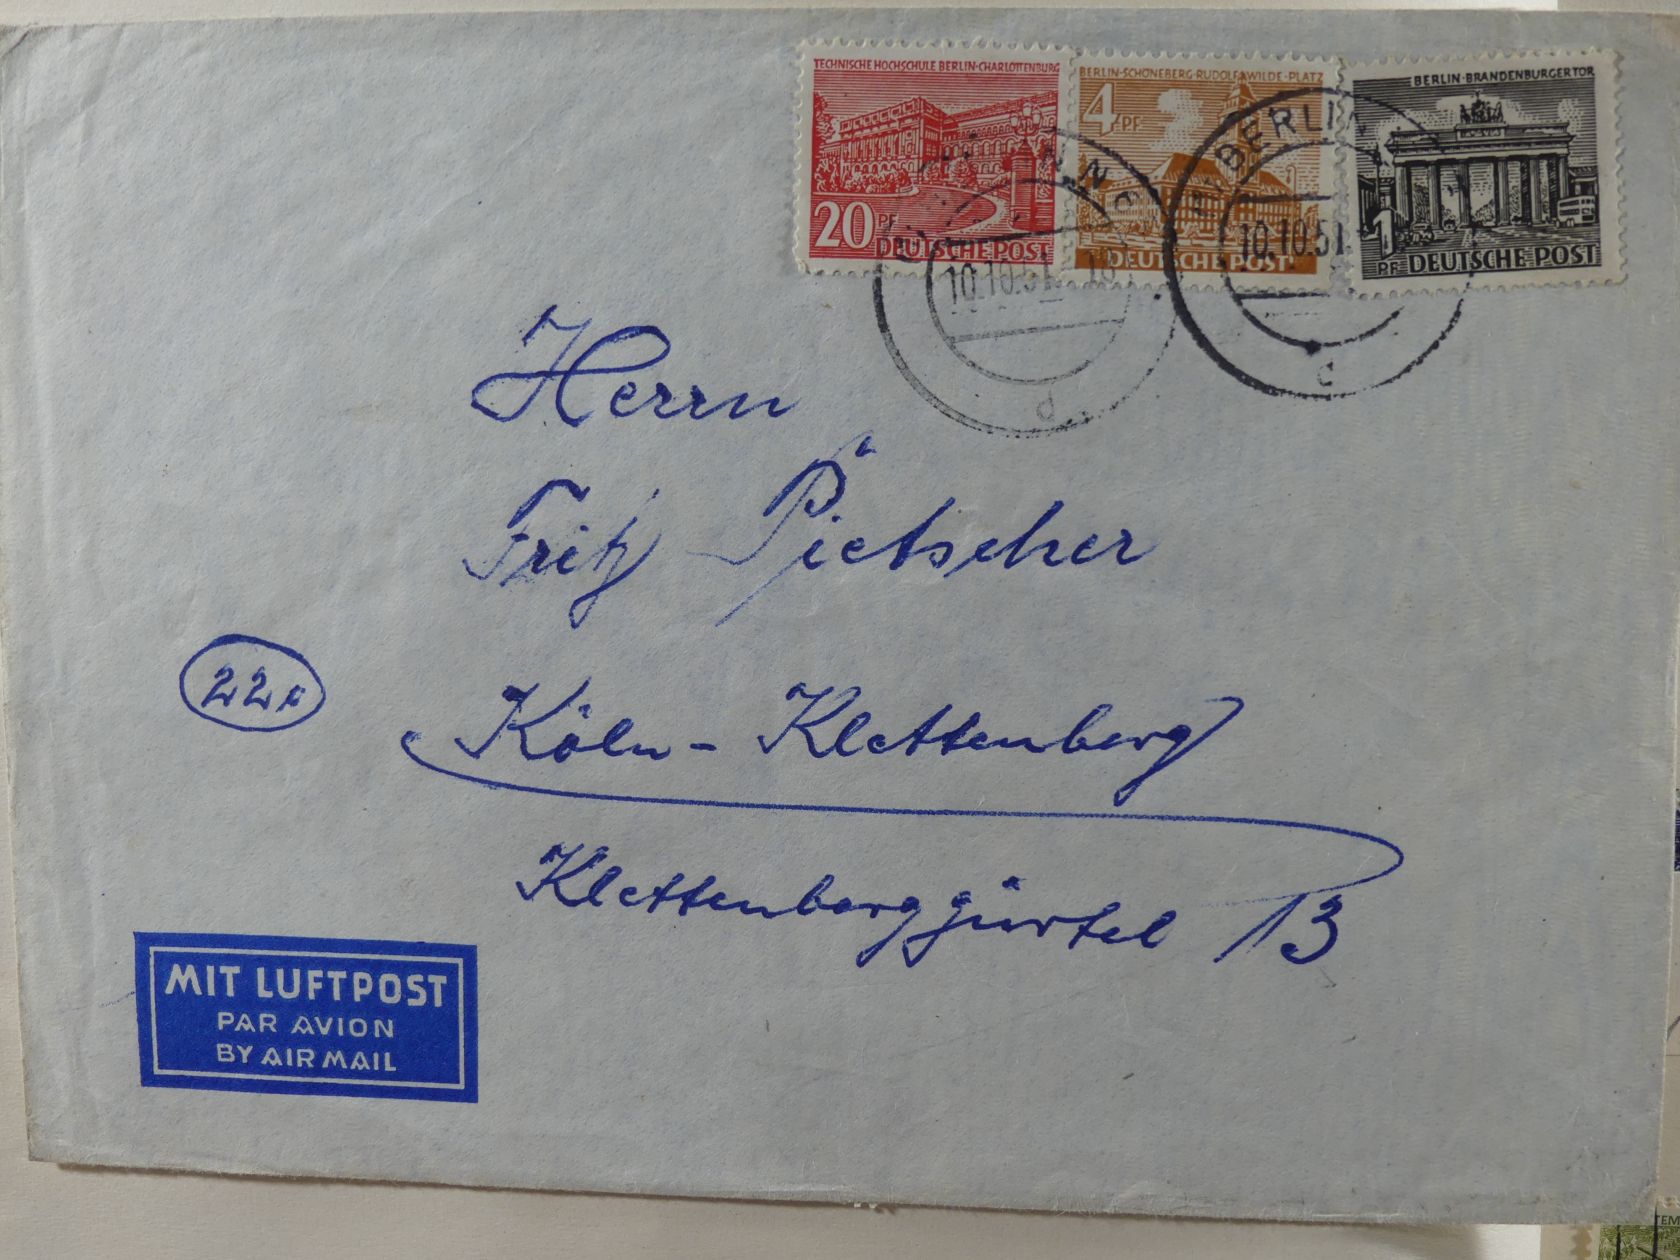 TECHNISCHE HOCHSCHULE BERLIN-CHARLOTTENBURG
20 PF
DEUTSCHE POST
BERLIN-SCHÖNEBERG·RUDOLF WILDE-PLATZ
4 PF
DEUTSCHE POST
BERLIN·BRANDENBURGER TOR
1 PF DEUTSCHE POST
10.10.51
d
BERLIN
10.10.51
c
Herrn
Fritz Pietscher
22a
Köln-Klettenberg
Klettenberggürtel 13
MIT LUFTPOST
PAR AVION
BY AIR MAIL